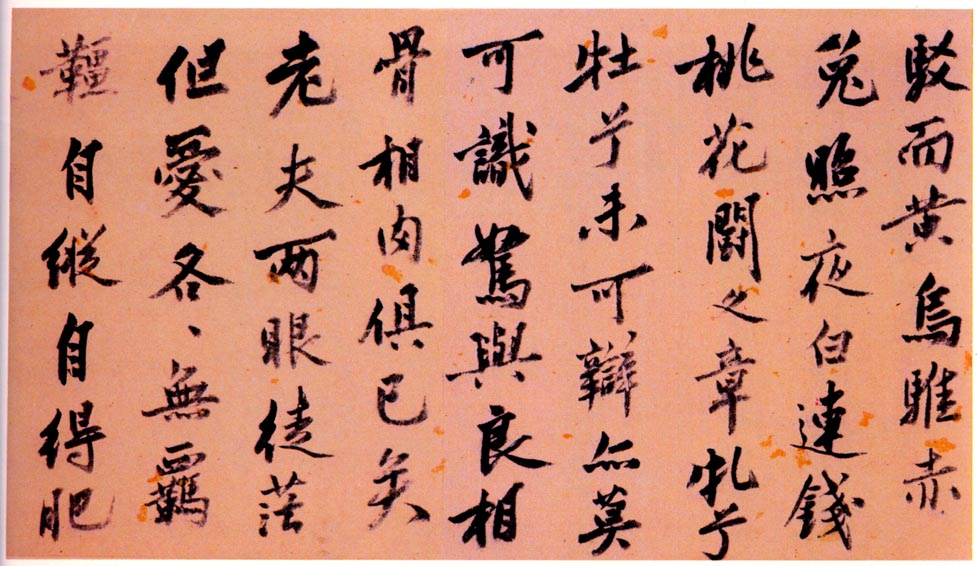 駁而黄烏騅赤
兔照夜白連錢
桃花闘文章牝兮
牡兮未可辯亦莫
可識駑與良相
骨相肉俱已矣
老夫兩眼徒茫
但愛各〻無羈
韁自縱自得肥